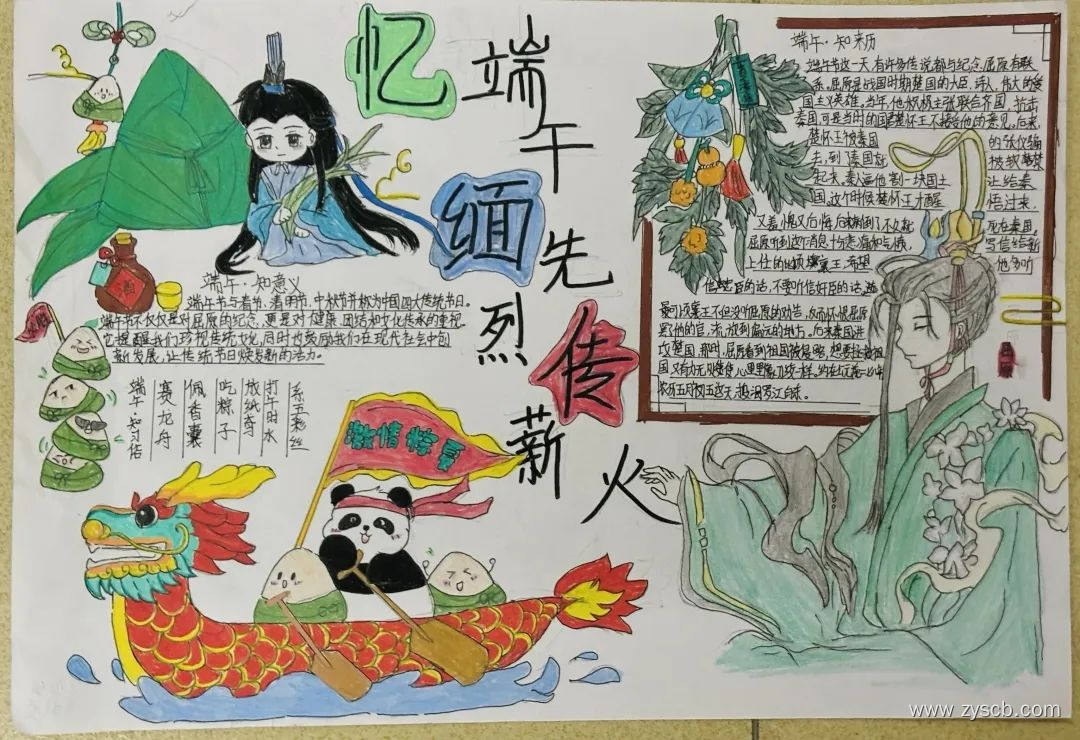 忆端午缅先烈传薪火
端午·知来历
端午节这一天有许多传说都与纪念屈原有联
系。屈原是战国时期楚国的大臣,诗人,伟大的爱
国主义英雄。当年,他极力主张联合齐国,抗击
秦国,可是当时的国君楚怀王不接受他的意见。后来,
楚怀王被秦国的张仪骗
去,到了秦国就被软禁
起来。秦人逼他割一块国土让给秦
国,这个时候楚怀王才醒悟过来,
又羞愧又后悔
屈原听到这个消息十分悲痛和气愤,写信给新
上任的顷襄王,希望他多听
信忠臣的话,不要听信奸臣的话,
顷襄王不但没听屈原的劝告,反而怀恨屈原
罢他的官,流放到偏远的地方,后来秦国进
攻楚国,那时,屈原看到祖国被侵略,想要拯救祖
国,又有力无处使,心里
农历五月初五这天,投汨罗江自杀。
端午·知意义
端午节与春节、清明节、中秋节并称为中国四大传统节日。
端午节不仅仅是对屈原的纪念,更是对健康、团结和文化传承的重视。
它提醒我们珍视传统文化,同时也鼓励我们在现代社会中
创新发展,让传统节日焕发新的活力。
端午·知习俗
赛龙舟
佩香囊
吃粽子
放纸鸢
打午时水
系五彩丝
激情
酒
www.zyscb.com